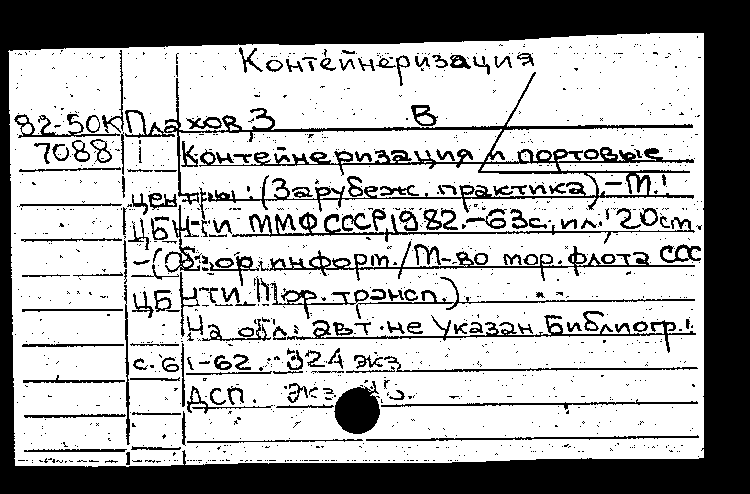 Контейнеризация
82-50К Плахов, З В
7088 Контейнеризация и портовые
центры: (Зарубеж. практика).-М.:
ЦБНТИ ММФ СССР, 1982.-63с., ил.; 20см.
-(Обзор. информ./М-во мор. флота СССР
ЦБНТИ. Мор. трансп.).
На обл.: авт. не указан. Библиогр.:
с. 61-62. 324 экз
ДСП. Экз